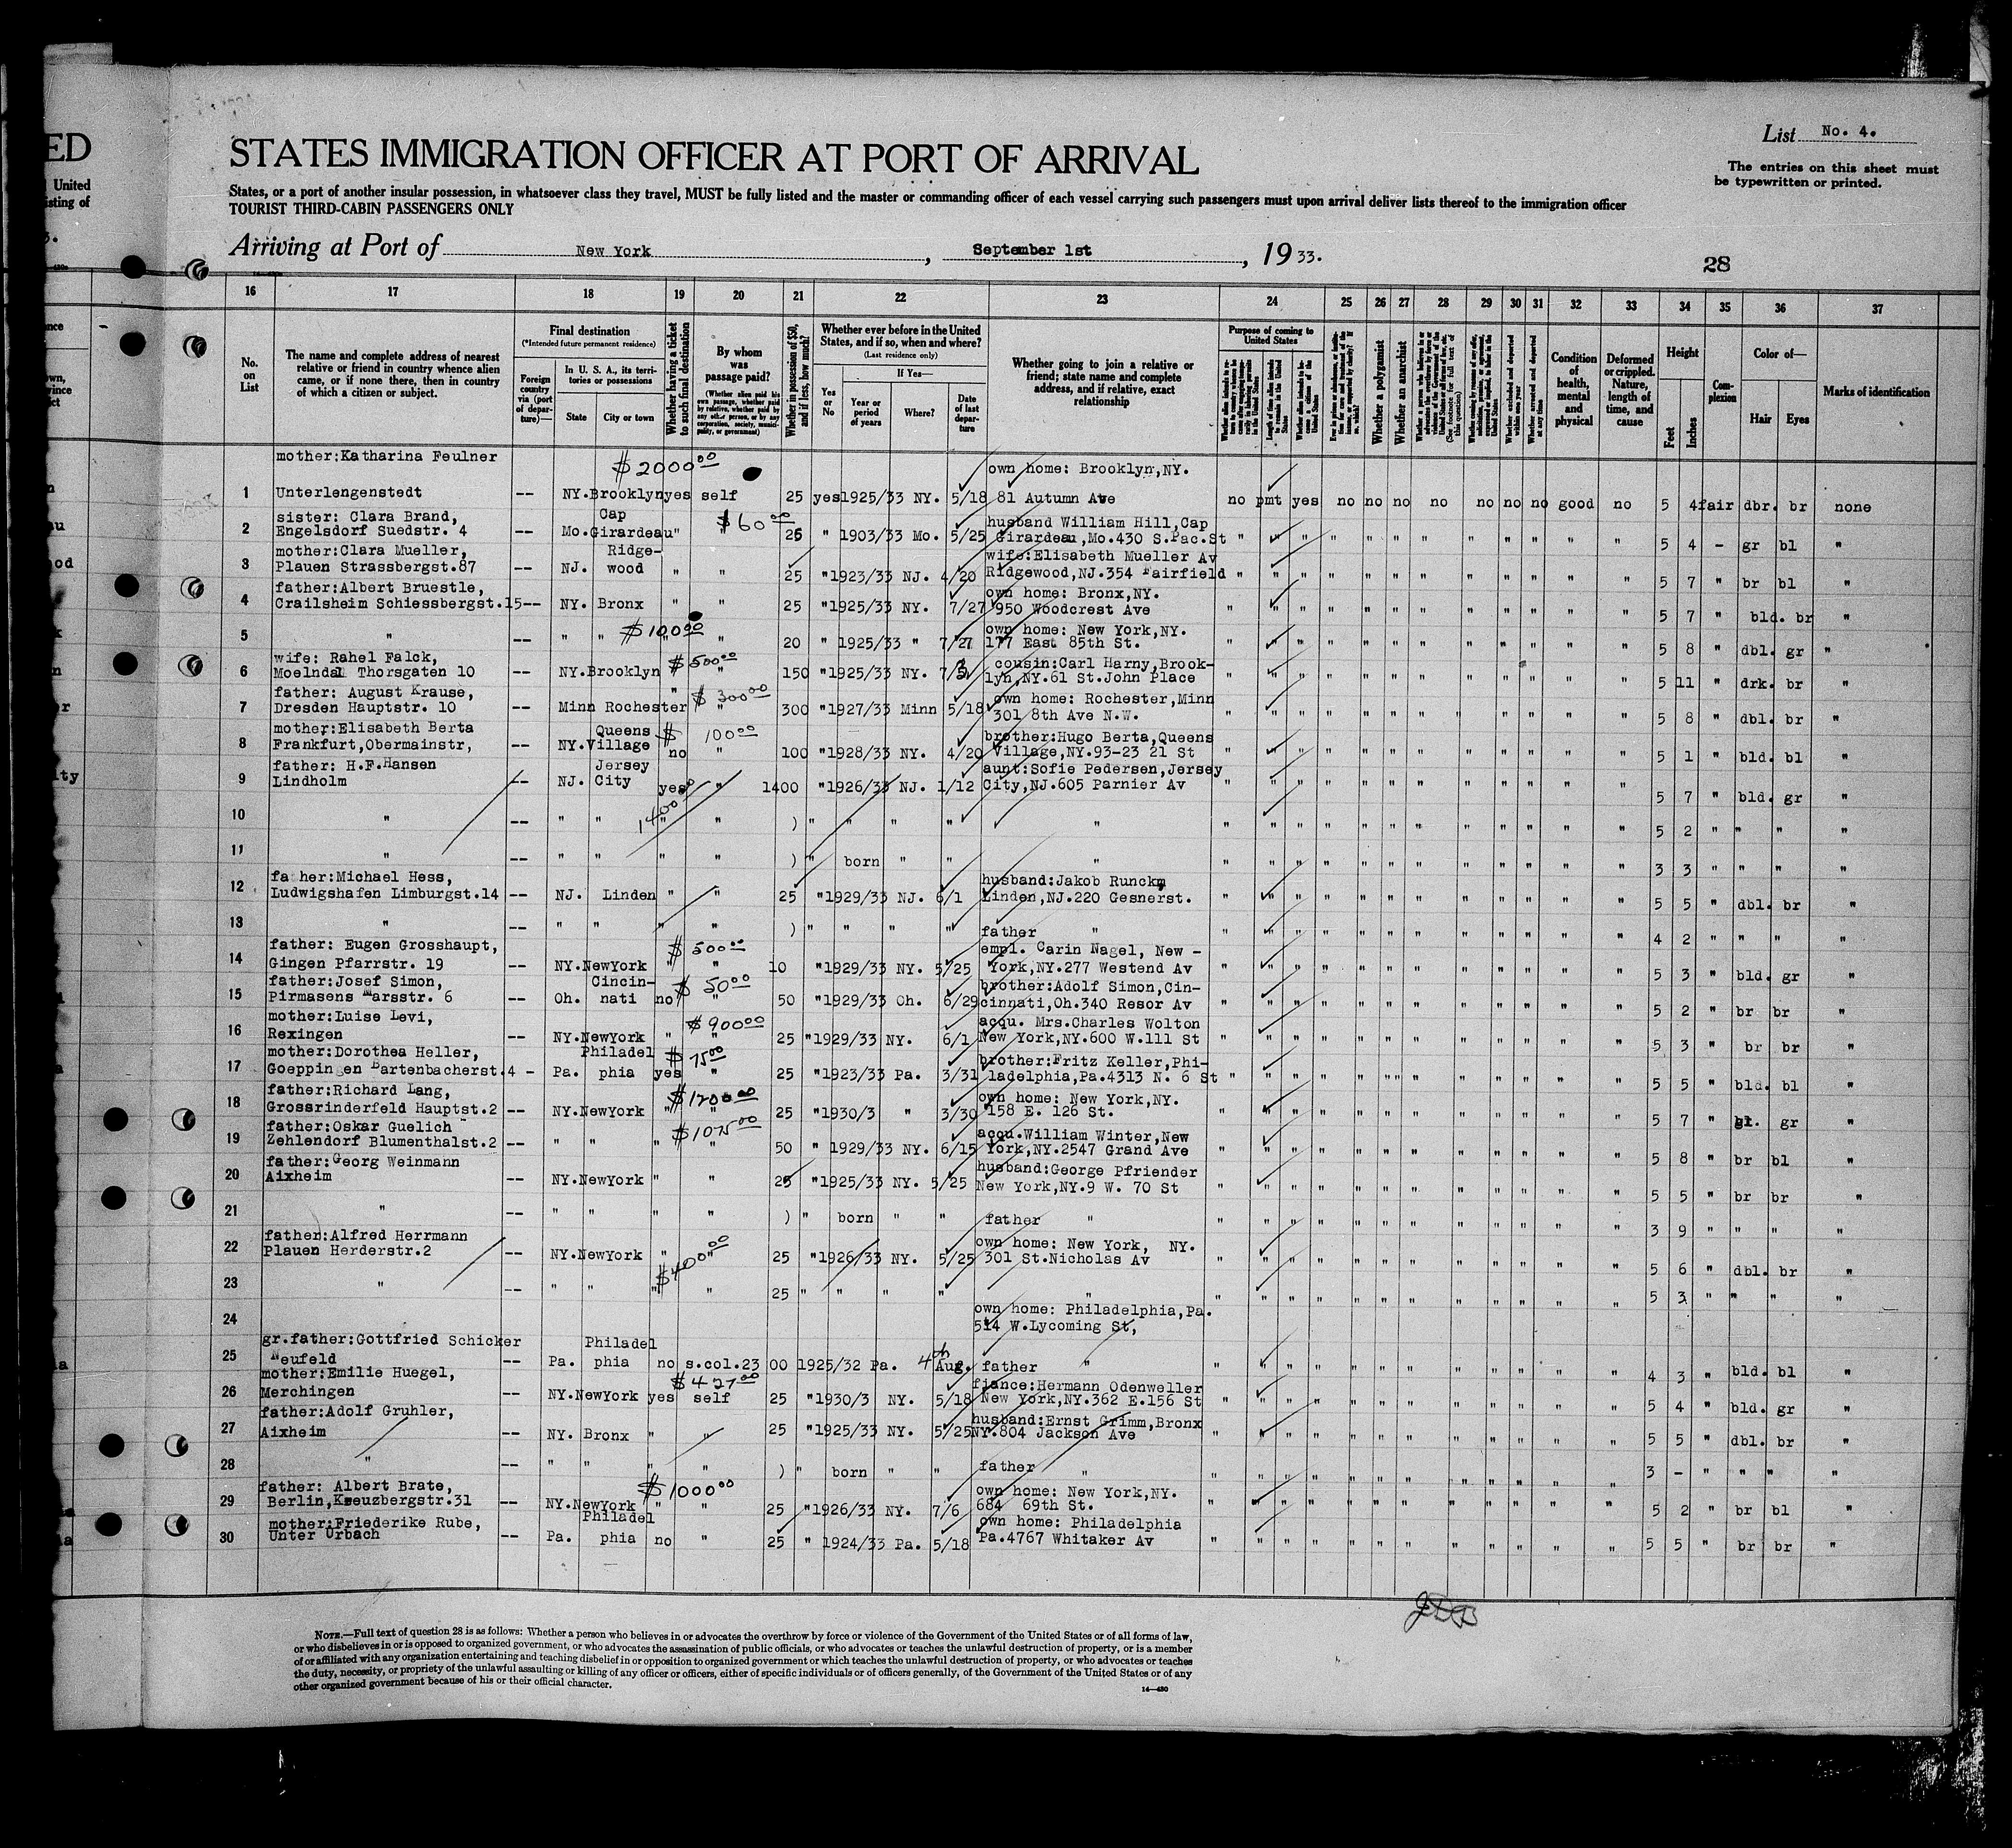 ED
United
isting of
List No. 4.
STATES IMMIGRATION OFFICER AT PORT OF ARRIVAL
The entries on this sheet must
be typewritten or printed.
States, or a port of another insular possession, in whatsoever class they travel, MUST be fully listed and the master or commanding officer of each vessel carrying such passengers must upon arrival deliver lists thereof to the immigration officer
TOURIST THIRD-CABIN PASSENGERS ONLY
Arriving at Port of New York, September 1st, 1933.
28
16 17 18 19 20 21 22 23 24 25 26 27 28 29 30 31 32 33 34 35 36 37
No. on List
The name and complete address of nearest relative or friend in country whence alien came, or if none there, then in country of which a citizen or subject.
Final destination
(*Intended future permanent residence)
Foreign country via (port of departure)—
In U. S. A., its territories or possessions
State
City or town
Whether having a ticket to such final destination
By whom was passage paid?
(Whether alien paid his own passage, whether paid by relative, whether paid by any other person, or by any corporation, society, municipality, or government)
Whether in possession of $50, and if less, how much?
Whether ever before in the United States, and if so, when and where?
(Last residence only)
Yes or No
If Yes—
Year or period of years
Where?
Date of last departure
Whether going to join a relative or friend; state name and complete address, and if relative, exact relationship
Purpose of coming to United States
Whether a polygamist
Whether an anarchist
Condition of health, mental and physical
Deformed or crippled. Nature, length of time, and cause
Height
Feet
Inches
Complexion
Color of—
Hair
Eyes
Marks of identification
mother:Katharina Feulner $2000 00 own home: Brooklyn,NY.
1 Unterlengenstedt -- NY. Brooklyn yes self 25 yes 1925/33 NY. 5/18 81 Autumn Ave no pmt yes no no no no no no no good no 5 4 fair dbr. br none
sister: Clara Brand, Cap $60 00 husband William Hill,Cap
2 Engelsdorf Suedstr. 4 -- Mo. Girardeau " " 25 " 1903/33 Mo. 5/25 Girardeau,Mo.430 S.Pac.St " " " " " " " " " " " " 5 4 - gr bl "
mother:Clara Mueller, Ridge- wife:Elisabeth Mueller Av
3 Plauen Strassbergst.87 -- NJ. wood " " 25 " 1923/33 NJ. 4/20 Ridgewood,NJ.354 Fairfield " " " " " " " " " " " " 5 7 " br bl "
father:Albert Bruestle, own home: Bronx,NY.
4 Crailsheim Schiessbergst.15 -- NY. Bronx " " 25 " 1925/33 NY. 7/27 950 Woodcrest Ave " " " " " " " " " " " " 5 7 " bld. br "
$100 00 own home: New York,NY.
5 " -- " " " 20 " 1925/33 " 7/27 177 East 85th St. " " " " " " " " " " " " 5 8 " dbl. gr "
wife: Rahel Falck, $500 00 cousin:Carl Harny,Brook-
6 Moelndal Thorsgaten 10 -- NY. Brooklyn " " 150 " 1925/33 NY. lyn,NY.61 St.John Place " " " " " " " " " " " " 5 11 " drk. br "
father: August Krause, $300 00 own home: Rochester,Minn
7 Dresden Hauptstr. 10 -- Minn Rochester " " 300 " 1927/33 Minn 5/18 301 8th Ave N.W. " " " " " " " " " " " " 5 8 " dbl. br "
mother:Elisabeth Berta Queens $ 100 00 brother:Hugo Berta,Queens
8 Frankfurt,Obermainstr, -- NY. Village no " 100 " 1928/33 NY. 4/20 Village,NY.93-23 21 St " " " " " " " " " " " " 5 1 " bld. bl "
father: H.F.Hansen Jersey aunt:Sofie Pedersen,Jersey
9 Lindholm -- NJ. City yes " 1400 " 1926/33 NJ. 1/12 City,NJ.605 Parnier Av " " " " " " " " " " " " 5 7 " bld. gr "
10 " -- " " 1400 00 " " ) " " " " " " " " " " " " " " " " " " 5 2 " " " "
11 " -- " " " " ) " born " " " " " " " " " " " " " " " " 3 3 " " " "
father:Michael Hess, husband:Jakob Runckm
12 Ludwigshafen Limburgst.14 -- NJ. Linden " " 25 " 1929/33 NJ. 6/1 Linden,NJ.220 Gesnerst. " " " " " " " " " " " " 5 5 " dbl. br "
13 " -- " " " " ) " " " " father " " " " " " " " " " " " " 4 2 " " " "
father: Eugen Grosshaupt, $500 00 empl. Carin Nagel, New -
14 Gingen Pfarrstr. 19 -- NY. NewYork " " 10 " 1929/33 NY. 5/25 York,NY.277 Westend Av " " " " " " " " " " " " 5 3 " bld. gr "
father:Josef Simon, Cincin- $ 50 00 brother:Adolf Simon,Cin-
15 Pirmasens Marsstr. 6 -- Oh. nati no " 50 " 1929/33 Oh. 6/29 cinnati,Oh.340 Resor Av " " " " " " " " " " " " 5 2 " br br "
mother:Luise Levi, $900 00 acqu. Mrs.Charles Wolton
16 Rexingen -- NY. NewYork " " 25 " 1929/33 NY. 6/1 New York,NY.600 W.111 St " " " " " " " " " " " " 5 3 " br br "
mother:Dorothea Heller, Philadel $ 75 00 brother:Fritz Keller,Phi-
17 Goeppingen Bartenbacherst.4 - Pa. phia yes " 25 " 1923/33 Pa. 3/31 ladelphia,Pa.4313 N. 6 St " " " " " " " " " " " " 5 5 " bld. bl "
father:Richard Lang, $1200 00 own home: New York,NY.
18 Grossrinderfeld Hauptst.2 -- NY. NewYork " " 25 " 1930/3 " 3/30 158 E. 126 St. " " " " " " " " " " " " 5 7 " gr "
father:Oskar Guelich $1075 00 acqu.William Winter,New
19 Zehlendorf Blumenthalst.2 -- " " " " 50 " 1929/33 NY. 6/15 York,NY.2547 Grand Ave " " " " " " " " " " " " 5 8 " br bl "
father:Georg Weinmann husband:George Pfriender
20 Aixheim -- NY. NewYork " " 25 " 1925/33 NY. 5/25 New York,NY.9 W. 70 St " " " " " " " " " " " " 5 5 " br br "
21 " -- " " " " ) " born " " father " " " " " " " " " " " " " 3 9 " " " "
father:Alfred Herrmann own home: New York, NY.
22 Plauen Herderstr.2 -- NY. NewYork " " 25 " 1926/33 NY. 5/25 301 St.Nicholas Av " " " " " " " " " " " " 5 6 " dbl. br "
23 " -- " " $400 00 " " 25 " " " " " " " " " " " " " " " " " 5 3 " " " "
own home: Philadelphia,Pa.
24 514 W.Lycoming St,
gr.father:Gottfried Schicker Philadel
25 Neufeld -- Pa. phia no s.col.23 00 1925/32 Pa. 4th Aug. father " " " " " " " " " " " " " 4 3 " bld. bl "
mother:Emilie Huegel, $427 00 fiance:Hermann Odenweller
26 Merchingen -- NY. NewYork yes self 25 " 1930/3 NY. 5/18 New York,NY.362 E.156 St " " " " " " " " " " " " 5 4 " bld. gr "
father:Adolf Gruhler, husband:Ernst Grimm,Bronx
27 Aixheim -- NY. Bronx " " 25 " 1925/33 NY. 5/25 NY.804 Jackson Ave " " " " " " " " " " " " 5 5 " dbl. br "
28 " -- " " " " ) " born " " father " " " " " " " " " " " " " 3 - " " " "
father: Albert Brate, $1000 00 own home: New York,NY.
29 Berlin,Kreuzbergstr.31 -- NY. NewYork " " 25 " 1926/33 NY. 7/6 684 69th St. " " " " " " " " " " " " 5 2 " br bl "
mother:Friederike Rube, Philadel own home: Philadelphia
30 Unter Urbach -- Pa. phia no " 25 " 1924/33 Pa. 5/18 Pa.4767 Whitaker Av " " " " " " " " " " " " 5 5 " br br "
NOTE.—Full text of question 28 is as follows: Whether a person who believes in or advocates the overthrow by force or violence of the Government of the United States or of all forms of law,
or who disbelieves in or is opposed to organized government, or who advocates the assassination of public officials, or who advocates or teaches the unlawful destruction of property, or is a member
of or affiliated with any organization entertaining and teaching disbelief in or opposition to organized government or which teaches the unlawful destruction of property, or who advocates or teaches
the duty, necessity, or propriety of the unlawful assaulting or killing of any officer or officers, either of specific individuals or of officers generally, of the Government of the United States or of any
other organized government because of his or their official character.
14—430